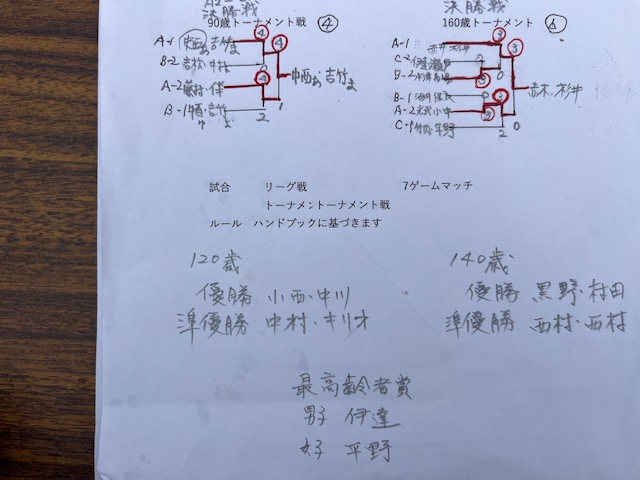 決勝戦
90歳トーナメント戦 ④
A-1 中西あ 吉竹ま
B-2 吉村・中林
A-2 藤村・伴
B-1 中西 吉竹
4 4 0 4 2 1
中西あ 吉竹ま
決勝戦
160歳トーナメント ⑥
A-1 赤木 杉井
C-2 伊達
B-2
B-1 酒井
A-2 小中
C-1 平野
3 3 2 0 3 0 3 2 0
赤木・杉井
試合 リーグ戦 7ゲームマッチ
トーナメントーナメント戦
ルール ハンドブックに基づきます
120歳
優勝 小西・中川
準優勝 中村・キリオ
140歳
優勝 黒野・村田
準優勝 西村・西村
最高齢者賞
男子 伊達
女子 平野